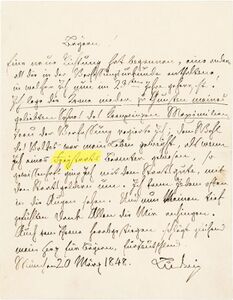 Bayern!
Eine neue Richtung hat begonnen, eine andere
als die in der Verfassungsurkunde enthaltene,
in welcher ich nun im 23ten Jahre geherrscht.
Ich lege die Krone nieder zu Gunsten meines
geliebten Sohnes des Kronprinzen Maximilian
Treu der Verfassung regierte Ich, dem Wohle
des Volkes war mein Leben geweiht, als wenn
Ich eines Freystaats Beamter gewesen, so
gewissenhaft ging Ich mit dem Staatsgute, mit
den Staatsgeldern um. Ich kann Jedem offen
in die Augen sehen. Und nun Meinen tief
gefühlten Dank Allen die Mir anhingen.
Auch vom Throne herabgestiegen schlägt glühend
mein Herz für Bayern, für Teutschland
München 20 März 1848. Ludwig